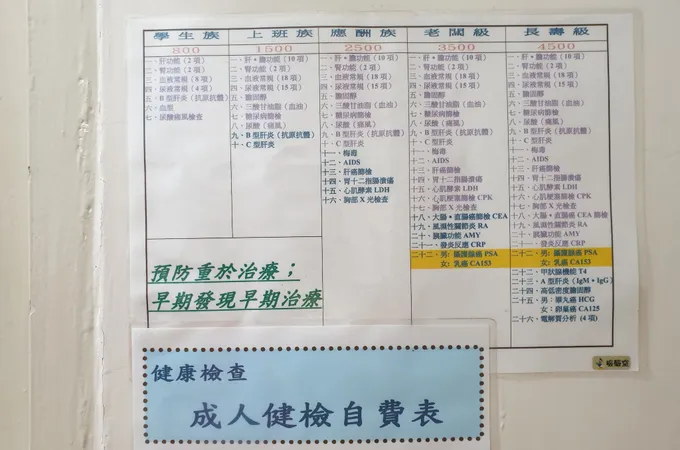 學生族
800
一、肝功能（2 項）
二、腎功能（2 項）
三、血液常規（8 項）
四、尿液常規（4 項）
五、B 型肝炎（抗原抗體）
六、血型
七、尿酸痛風檢查
上班族
1500
一、肝・膽功能（10 項）
二、腎功能（2 項）
三、血液常規（18 項）
四、尿液常規（15 項）
五、膽固醇
六、三酸甘油脂（血油）
七、糖尿病篩檢
八、尿酸（痛風）
九、B 型肝炎（抗原抗體）
十、C 型肝炎
應酬族
2500
一、肝・膽功能（10 項）
二、腎功能（2 項）
三、血液常規（18 項）
四、尿液常規（15 項）
五、膽固醇
六、三酸甘油脂（血油）
七、糖尿病篩檢
八、尿酸（痛風）
九、B 型肝炎（抗原抗體）
十、C 型肝炎
十一、梅毒
十二、AIDS
十三、肝癌篩檢
十四、胃十二指腸潰瘍
十五、心肌酵素 LDH
十六、心肌梗塞篩檢
十七、胸部 X 光檢查
老闆級
3500
一、肝・膽功能（10 項）
二、腎功能（2 項）
三、血液常規（18 項）
四、尿液常規（15 項）
五、膽固醇
六、三酸甘油脂（血油）
七、糖尿病篩檢
八、尿酸（痛風）
九、B 型肝炎（抗原抗體）
十、C 型肝炎
十一、梅毒
十二、AIDS
十三、肝癌篩檢
十四、胃十二指腸潰瘍
十五、心肌酵素 LDH
十六、心肌梗塞篩檢 CPK
十七、胸部 X 光檢查
十八、大腸・直腸癌篩檢 CEA
十九、風濕性關節炎 RA
二十、胰臟功能 AMY
二十一、發炎反應 CRP
二十二、男: 攝護腺癌 PSA
女: 乳癌 CA153
長壽級
4500
一、肝・膽功能（10 項）
二、腎功能（2 項）
三、血液常規（18 項）
四、尿液常規（15 項）
五、膽固醇
六、三酸甘油脂（血油）
七、糖尿病篩檢
八、尿酸（痛風）
九、B 型肝炎（抗原抗體）
十、C 型肝炎
十一、梅毒
十二、AIDS
十三、肝癌篩檢
十四、胃十二指腸潰瘍
十五、心肌酵素 LDH
十六、心肌梗塞篩檢 CPK
十七、胸部 X 光檢查
十八、大腸・直腸癌 CEA 篩檢
十九、風濕性關節炎 RA
二十、胰臟功能 AMY
二十一、發炎反應 CRP
二十二、男: 攝護腺癌 PSA
女: 乳癌 CA153
二十二、甲狀線機能 T4
二十三、A 型肝炎（IgM、IgG）
二十四、高低密度膽固醇
二十五、男：睪丸癌 HCG
女：卵巢癌 CA125
二十六、電解質分析（4 項）
預防重於治療；
早期發現早期治療
健康檢查
成人健檢自費表